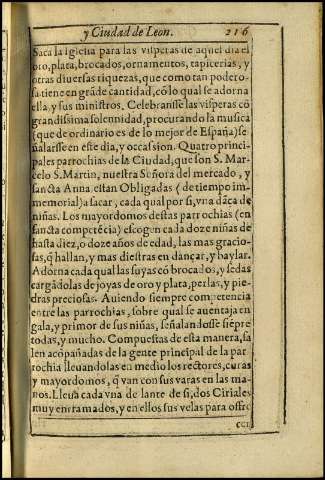 y Ciudad de Leon. 216
Saca la Iglesia para las visperas de aquel dia el
oro, plata, brocados, ornamentos, tapicerias, y
otras diuersas riquezas, que como tan podero-
sa tiene en grãde cantidad, cõ lo qual se adorna
ella, y sus ministros. Celebranse las visperas cõ
grandissima solennidad, procurando la musica
(que de ordinario es de lo mejor de España) se
ñalarsse en este dia, y occassion. Quatro princi-
pales parrochias de la Ciudad, que son S. Mar-
celo S. Martin, nuestra Señora del mercado, y
sancta Anna estan Obligadas (de tiempo im-
memorial) a sacar, cada qual por si, vna dãça de
niñas. Los mayordomos destas parrochias (en
sancta competẽcia) escogen cada doze niñas de
hasta diez, o doze años de edad, las mas gracio-
sas, q̃ hallan, y mas diestras en dançar, y baylar.
Adorna cada qual las suyas cõ brocados, y sedas
cargãdolas de joyas de oro y plata, perlas, y pie-
dras preciosas. Auiendo siempre competencia
entre las parrochias, sobre qual se auentaja en
gala, y primor de sus niñas, señalandosse siẽpre
todas, y mucho. Compuestas de esta manera, sa
len acõpañadas de la gente principal de la par-
rochia lleuandolas en medio los rectores, curas
y mayordomos, q̃ van con sus varas en las ma-
nos. Lleua cada vna de lante de si, dos Ciriales
muy enrramados, y en ellos sus velas para offre
cer